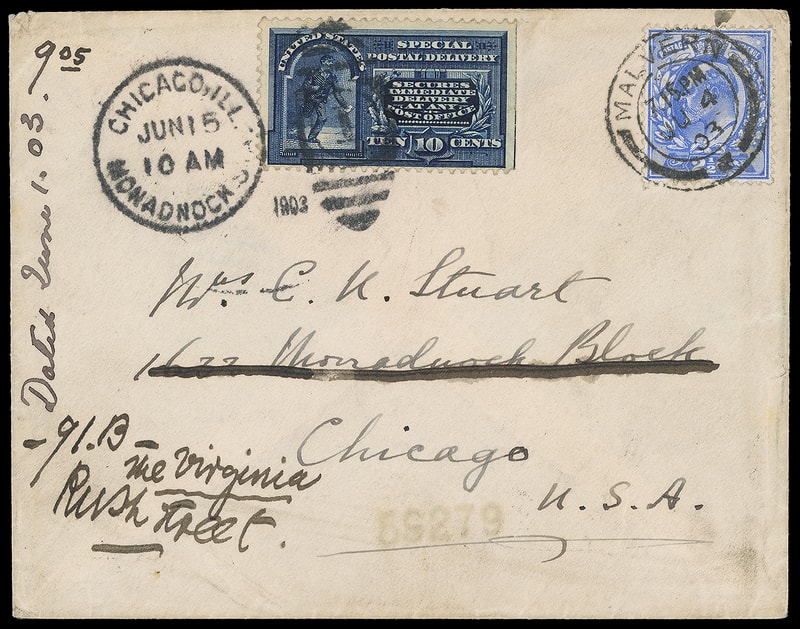 9 05
Dated June 1. 03.
CHICAGO, ILL.
JUN 15
10 AM
MONADNOCK
1903
UNITED STATES
SPECIAL
POSTAL DELIVERY
SECURES
IMMEDIATE
DELIVERY
AT ANY
POST OFFICE
TEN 10 CENTS
MALVERN
7.15 PM
JU 4
03
Mrs C. K. Stuart
1622 Monadnock Block
Chicago
U. S. A.
- 91. B -
The Virginia
Rush Street.
59279